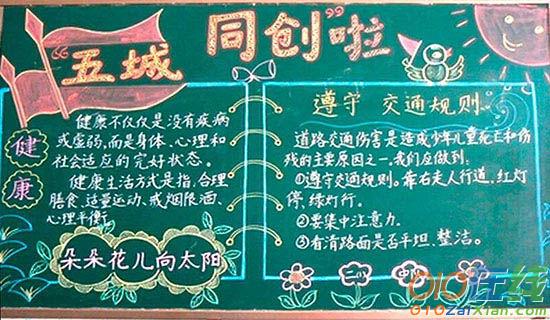 “五城同创”啦
健康
健康不仅仅是没有疾病
或虚弱,而是身体、心理和
社会适应的完好状态。
健康生活方式是指,合理
膳食、适量运动、戒烟限酒、
心理平衡。
朵朵花儿向太阳
遵守 交通规则。
道路交通伤害是造成少年儿童死亡和伤
残的主要原因之一。我们应做到:
①遵守交通规则。靠右走人行道,红灯
停,绿灯行。
②要集中注意力.
③看清路面是否平坦、整洁。
二(1) 中
010在线
010zaixian.com